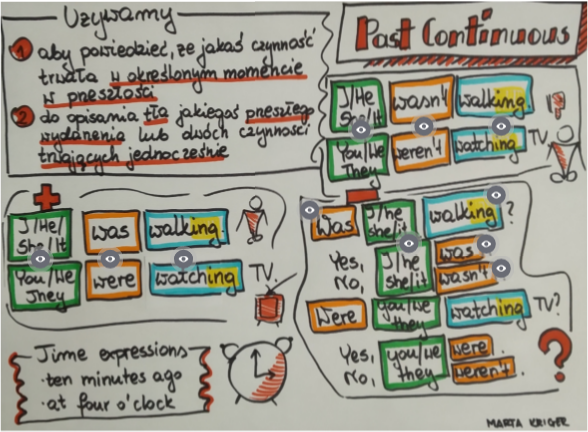 Używamy
Past Continuous
1 aby powiedzieć, że jakaś czynność
trwała w określonym momencie
w przeszłości
2 do opisania tła jakiegoś przeszłego
wydarzenia lub dwóch czynności
trwających jednocześnie
I/He She/It wasn't walking
You/We They weren't watching TV.
+
I/He/ She/It was walking.
You/We They were watching TV.
-
Was I/he she/it walking?
Yes, I/he she/it was
No, wasn't
Were you/we they watching TV?
Yes, you/we they were
No, weren't.
?
Time expressions
· ten minutes ago
· at four o'clock
MARTA KRIGER